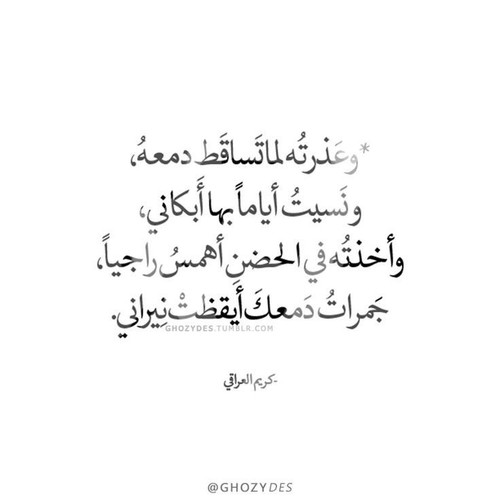 *وعَذرتُه لما تَساقَط دمعهُ،
ونَسيتُ أياماً بها أَبكاني،
وأخذتُه في الحضنِ أهمسُ راجياً،
جَمراتُ دَمعكَ أيقظتْ نِيراني.
GHOZYDES.TUMBLR.COM
-كريم العراقي
@GHOZYDES